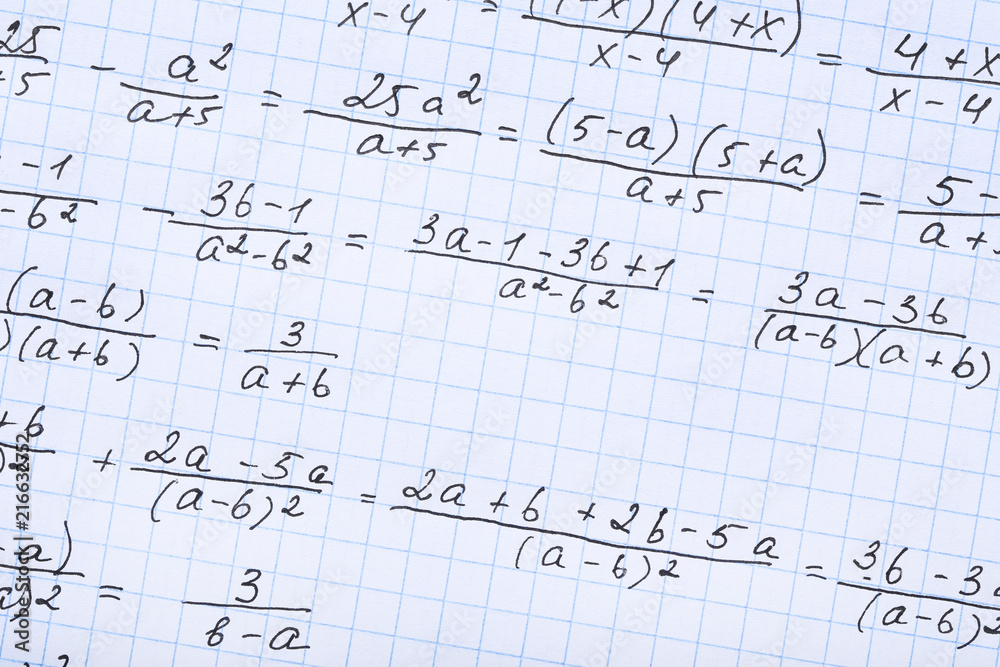 x-4 = (4-x)(4+x) / x-4 = 4+x / x-4
25 / +5 - a² / a+5 = 25a² / a+5 = (5-a)(5+a) / a+5 = 5- / a+5
-1 / -b² - 3b-1 / a²-b² = 3a-1-3b+1 / a²-b² = 3a-3b / (a-b)(a+b)
(a-b) / )(a+b) = 3 / a+b
+b + 2a-5a / (a-b)² = 2a+b+2b-5a / (a-b)² = 3b-3a / (a-b)²
-a) / a)2 = 3 / b-a
Adobe Stock | #216638352